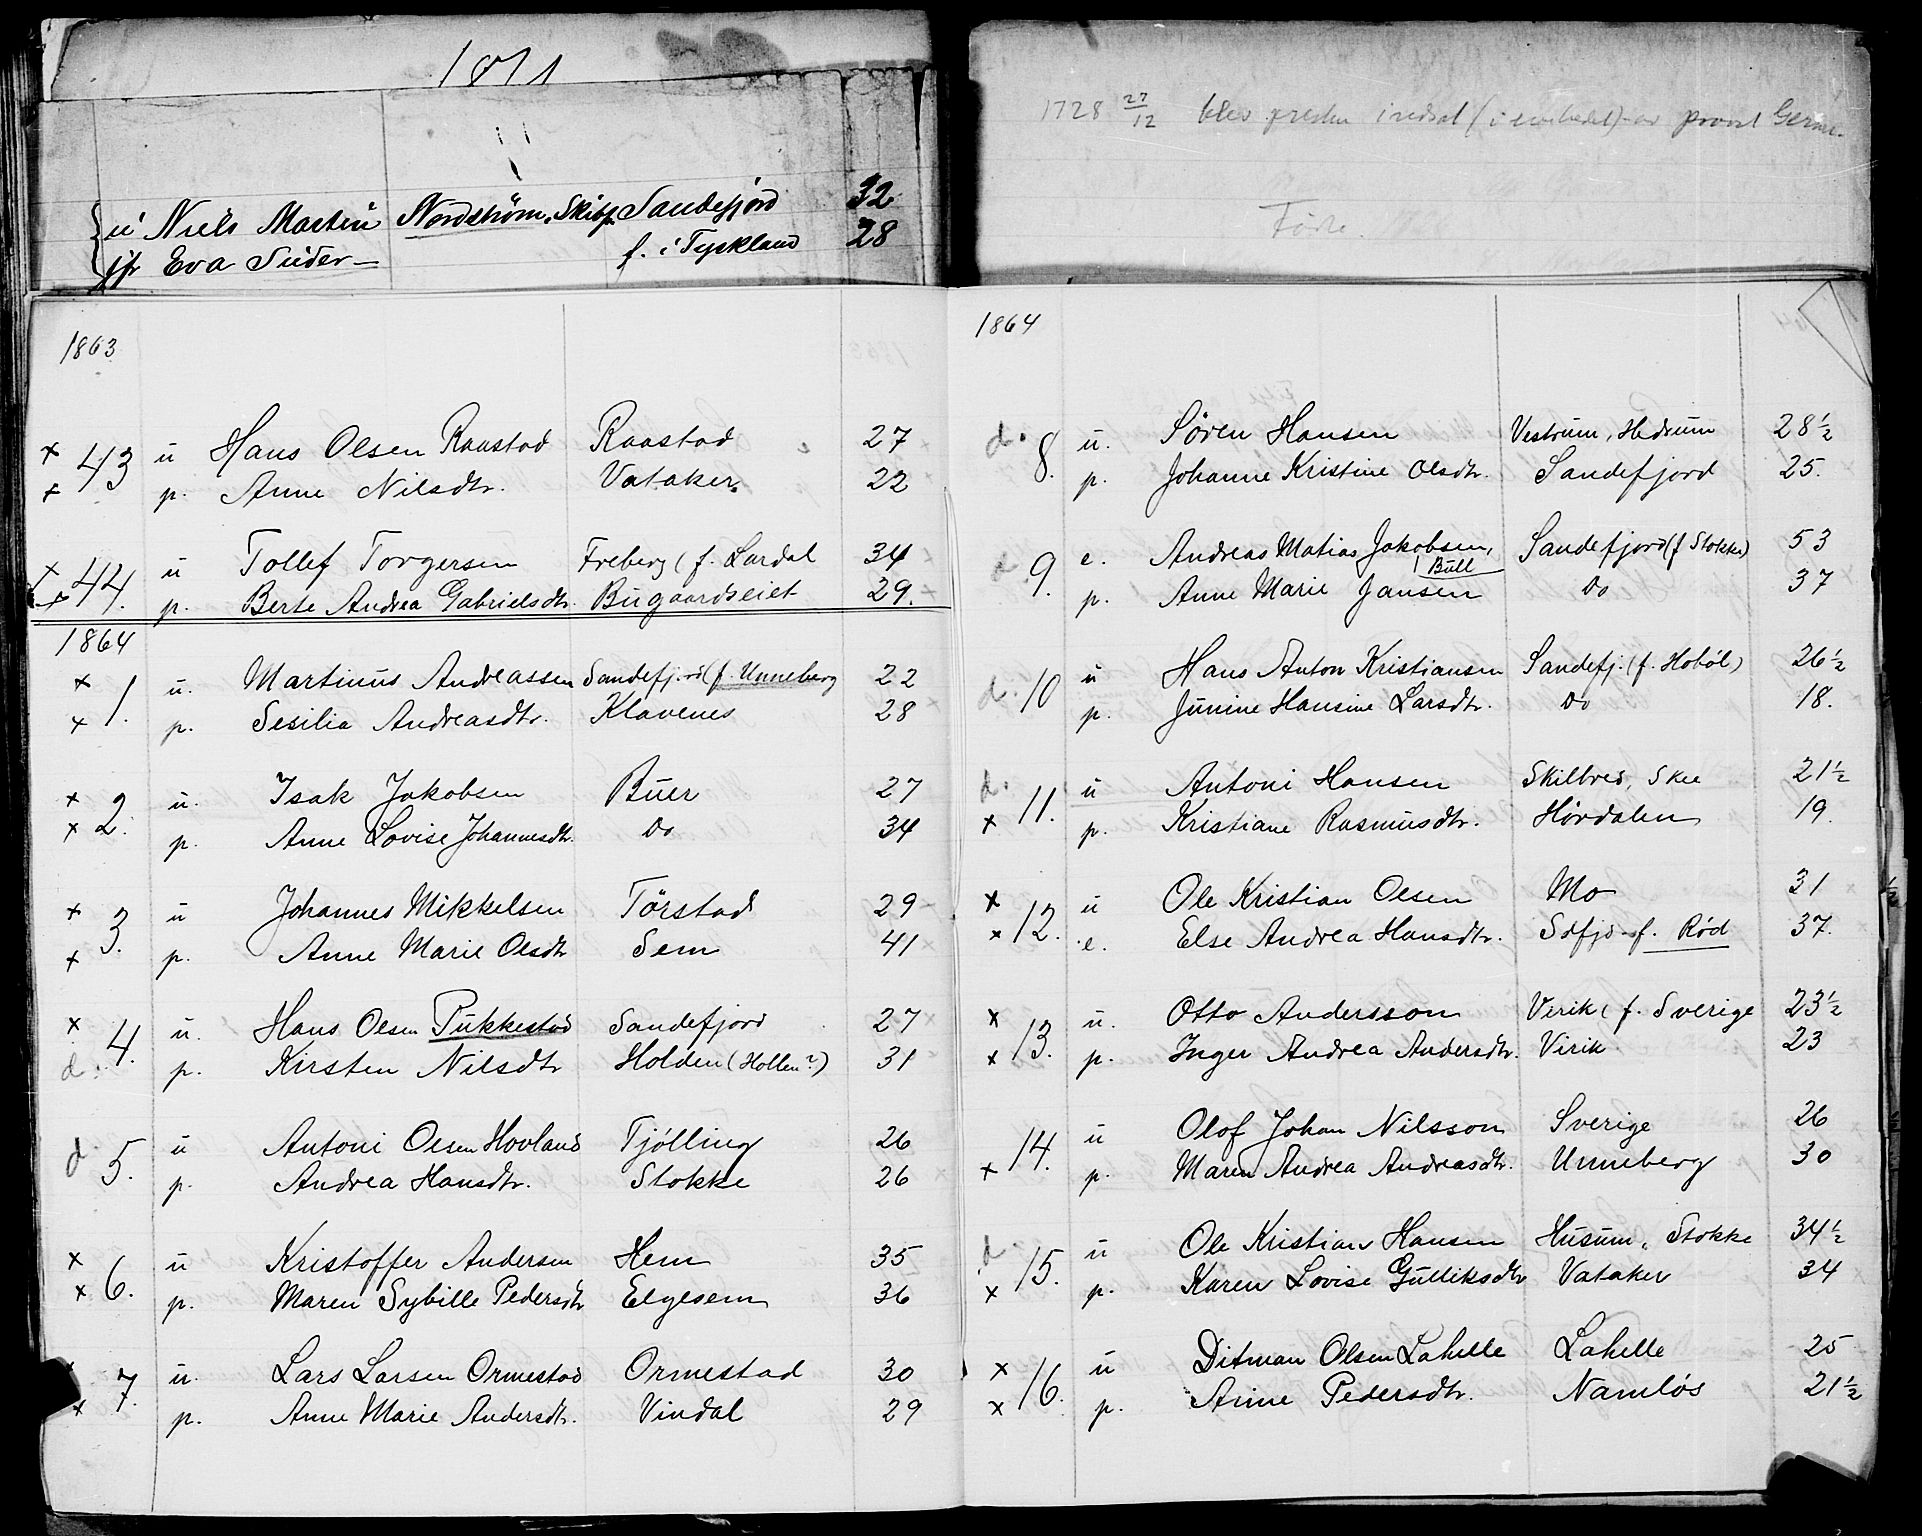 1871
u Niels Martin Nordstrøm, Skibf. Sandefjord 32
pr Eva Suder— f. i Tyskland 28
1863
x 43 u Hans Olsen Raastad Raastad 27
x p. Anne Nilsdtr. Vataker. 22
x 44. u Tollef Torgersen Freberg (f. Lardal 34
x p. Berte Andrea Gabrielsdtr. Bugaardseiet 29.
1864
x 1. u. Martinus Andreassen Sandefjord (f. Unneberg 22
x p. Sesilia Andreasdtr. Klavenes 28
x 2. u. Isak Jakobsen Buer 27
x p. Anne Lovise Johannesdtr. Do 34
x 3. u Johannes Mikkelsen Törstad 29
x p. Anne Marie Olsdtr Sem 41
x 4. u. Hans Olsen Pukkestad Sandefjord 27
d. p. Kirsten Nilsdtr Holden (Hollen?) 31
d 5. u Antoni Olsen Hovland Tjölling 26
p. Andrea Hansdtr. Stokke 26
x 6. u Kristoffer Andersen Hem 35
x p. Maren Sybille Pedersdtr Elgesem 36
7. u. Lars Larsen Ormestad Ormestad 30
x p. Anne Marie Andersdtr. Vindal 29
1728 27/12 blev presten indsat (i embedet) av provst
1864
d. 8. u. Sören Hansen Vestrum, Hedrum 28½
p. Johanne Kristine Olsdtr. Sandefjord 25.
d 9. e. Andreas Matias Jakobsen, Sandefjord (f Stokke) 53
Bull
p. Anne Marie Jansen Do 37
d. 10 u Hans Anton Kristiansen Sandefj. (f. Hoböl) 26½
p. Junine Hansine Larsdtr. Do 18.
d. 11. u Antoni Hansen Skilbred, Skee 21½
x p. Kristiane Rasmusdtr. Hørdalen 19.
x 12. u Ole Kristian Olsen Mo 31
x e. Else Andrea Hansdtr. Sdfjd f. Rød 37.
x 13. u. Otto Andersson Virik (f. Sverige 23½
x p. Inger Andrea Andersdtr. Virik 23
14. u Olof Johan Nilsson Sverige 26
x p. Maren Andrea Andreasdtr. Unneberg 30
d. 15. u Ole Kristian Hansen Husum, Stokke 34½
x p. Karen Lovise Gulliksdtr Vataker 34
x 16. u Ditman Olsen Lahelle Lahelle 25
x p. Anne Pedersdtr. Namløs 21½